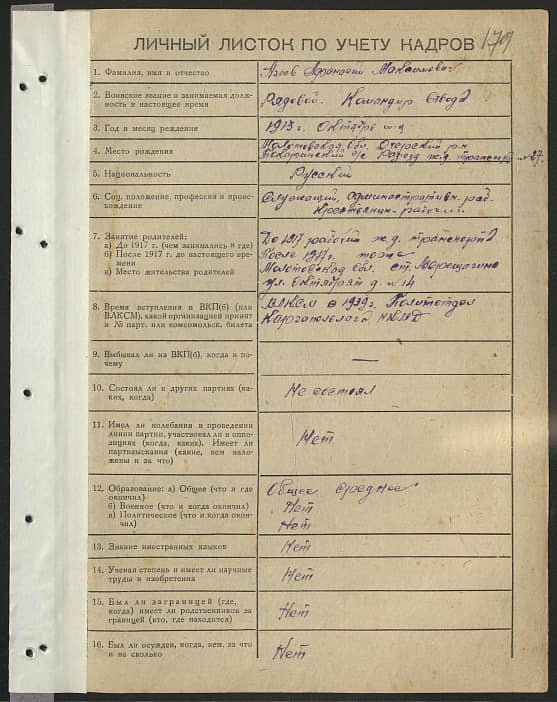 179
ЛИЧНЫЙ ЛИСТОК ПО УЧЕТУ КАДРОВ
1. Фамилия, имя и отчество
Афанасий Максимович
2. Воинское звание и занимаемая долж-
ность в настоящее время
Рядовой. Командир взвода
3. Год и месяц рождения
1915 г. Октябрь м-ц
4. Место рождения
Молотовская обл. Очерский р-н
Разъезд ж.д. транспорта
5. Национальность
Русский
6. Соц. положение, профессия и проис-
хождение
Служащий, административн. раб.
Крестьянин-рабочий.
7. Занятие родителей:
а) До 1917 г. (чем занимались и где)
б) После 1917 г. до настоящего вре-
мени
в) Место жительства родителей
До 1917 рабочий ж.д. транспорта
После 1917г. тоже
Молотовская обл. ст. Верещагино
ул. Октябрят д. №14
8. Время вступления в ВКП(б) (или
ВЛКСМ), какой организацией принят
и № парт. или комсомольск. билета
ВЛКСМ с 1939г. Политотдел
Каргопольлага НКВД
9. Выбывал ли из ВКП(б), когда и по-
чему
—
10. Состоял ли в других партиях (ка-
ких, когда)
Не состоял
11. Имел ли колебания в проведении
линии партии, участвовал ли в оппо-
зициях (когда, каких). Имеет ли
партвзыскания (какие, кем нало-
жены и за что)
Нет
12. Образование: а) Общее (что и где
окончил)
б) Военное (что и когда окончил)
в) Политическое (что и когда окон-
чил)
Общее среднее
Нет
Нет
13. Знание иностранных языков
Нет
14. Ученая степень и имеет ли научные
труды и изобретения
Нет
15. Был ли заграницей (где,
когда) имеет ли родственников за
границей (кто, где находится)
Нет
16. Был ли осужден, когда, кем, за что
и на сколько
Нет